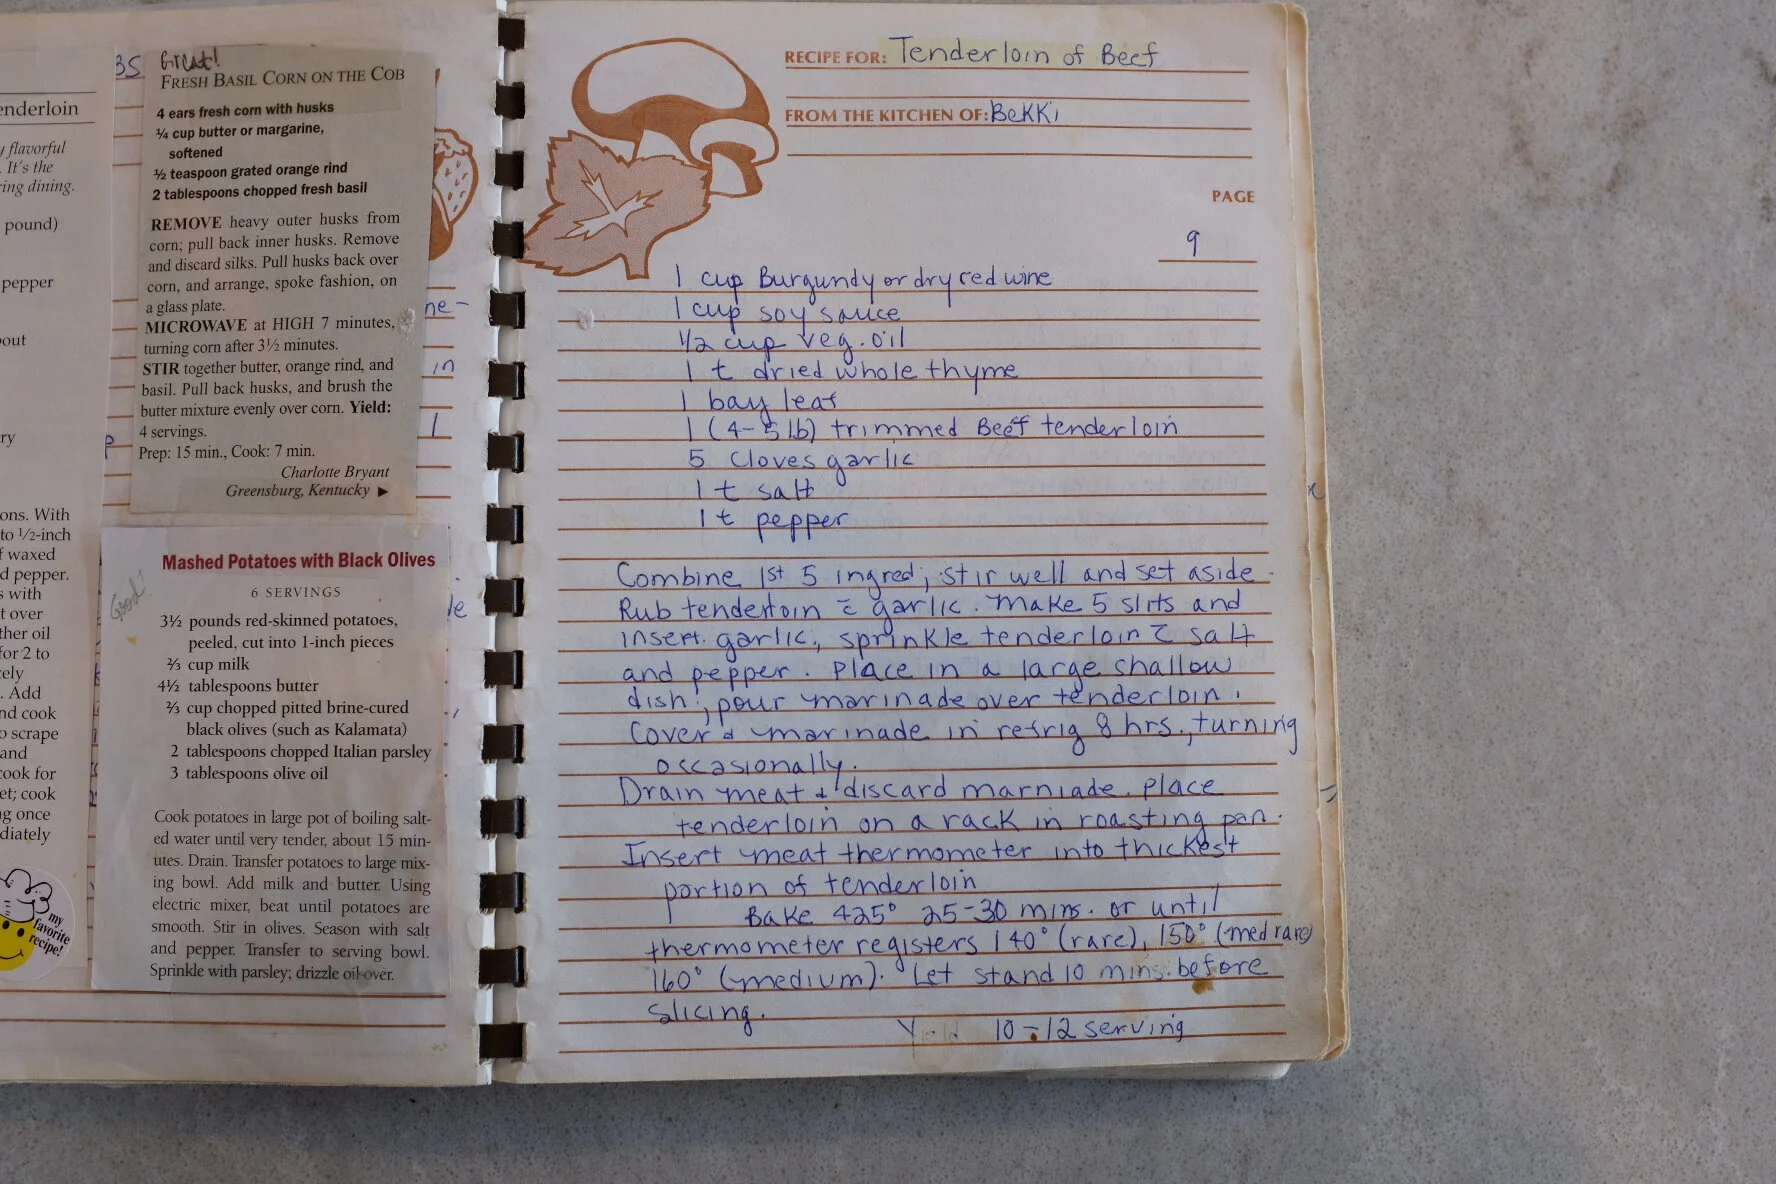 enderloin
y flavorful
. It's the
ring dining.
pound)
pepper
out
ry
ons. With
to ½-inch
f waxed
d pepper.
s with
t over
ther oil
for 2 to
cely
. Add
nd cook
o scrape
and
cook for
et; cook
ng once
diately
my
favorite
recipe!
BS
Great!
FRESH BASIL CORN ON THE COB
4 ears fresh corn with husks
¼ cup butter or margarine,
softened
½ teaspoon grated orange rind
2 tablespoons chopped fresh basil
REMOVE heavy outer husks from
corn; pull back inner husks. Remove
and discard silks. Pull husks back over
corn, and arrange, spoke fashion, on
a glass plate.
MICROWAVE at HIGH 7 minutes,
turning corn after 3½ minutes.
STIR together butter, orange rind, and
basil. Pull back husks, and brush the
butter mixture evenly over corn. Yield:
4 servings.
Prep: 15 min., Cook: 7 min.
Charlotte Bryant
Greensburg, Kentucky ▶
ne-
in
Good!
Mashed Potatoes with Black Olives
6 SERVINGS
3½ pounds red-skinned potatoes,
peeled, cut into 1-inch pieces
⅔ cup milk
4½ tablespoons butter
⅔ cup chopped pitted brine-cured
black olives (such as Kalamata)
2 tablespoons chopped Italian parsley
3 tablespoons olive oil
Cook potatoes in large pot of boiling salt-
ed water until very tender, about 15 min-
utes. Drain. Transfer potatoes to large mix-
ing bowl. Add milk and butter. Using
electric mixer, beat until potatoes are
smooth. Stir in olives. Season with salt
and pepper. Transfer to serving bowl.
Sprinkle with parsley; drizzle oil over.
RECIPE FOR: Tenderloin of Beef
FROM THE KITCHEN OF: Bekki
PAGE
9
1 cup Burgundy or dry red wine
1 cup soy sauce
1/2 cup veg. oil
1 t dried whole thyme
1 bay leaf
1 (4-5 lb) trimmed Beef tenderloin
5 Cloves garlic
1 t salt
1 t pepper
Combine 1st 5 ingred; stir well and set aside.
Rub tenderloin c̄ garlic. Make 5 slits and
insert garlic, sprinkle tenderloin c̄ salt
and pepper. Place in a large shallow
dish; pour marinade over tenderloin.
Cover & marinade in refrig 8 hrs., turning
occasionally.
Drain meat & discard marniade. Place
tenderloin on a rack in roasting pan.
Insert meat thermometer into thickest
portion of tenderloin
Bake 425° 25-30 mins. or until
thermometer registers 140° (rare), 150° (med rare)
160° (medium). Let stand 10 mins. before
slicing.
10-12 serving